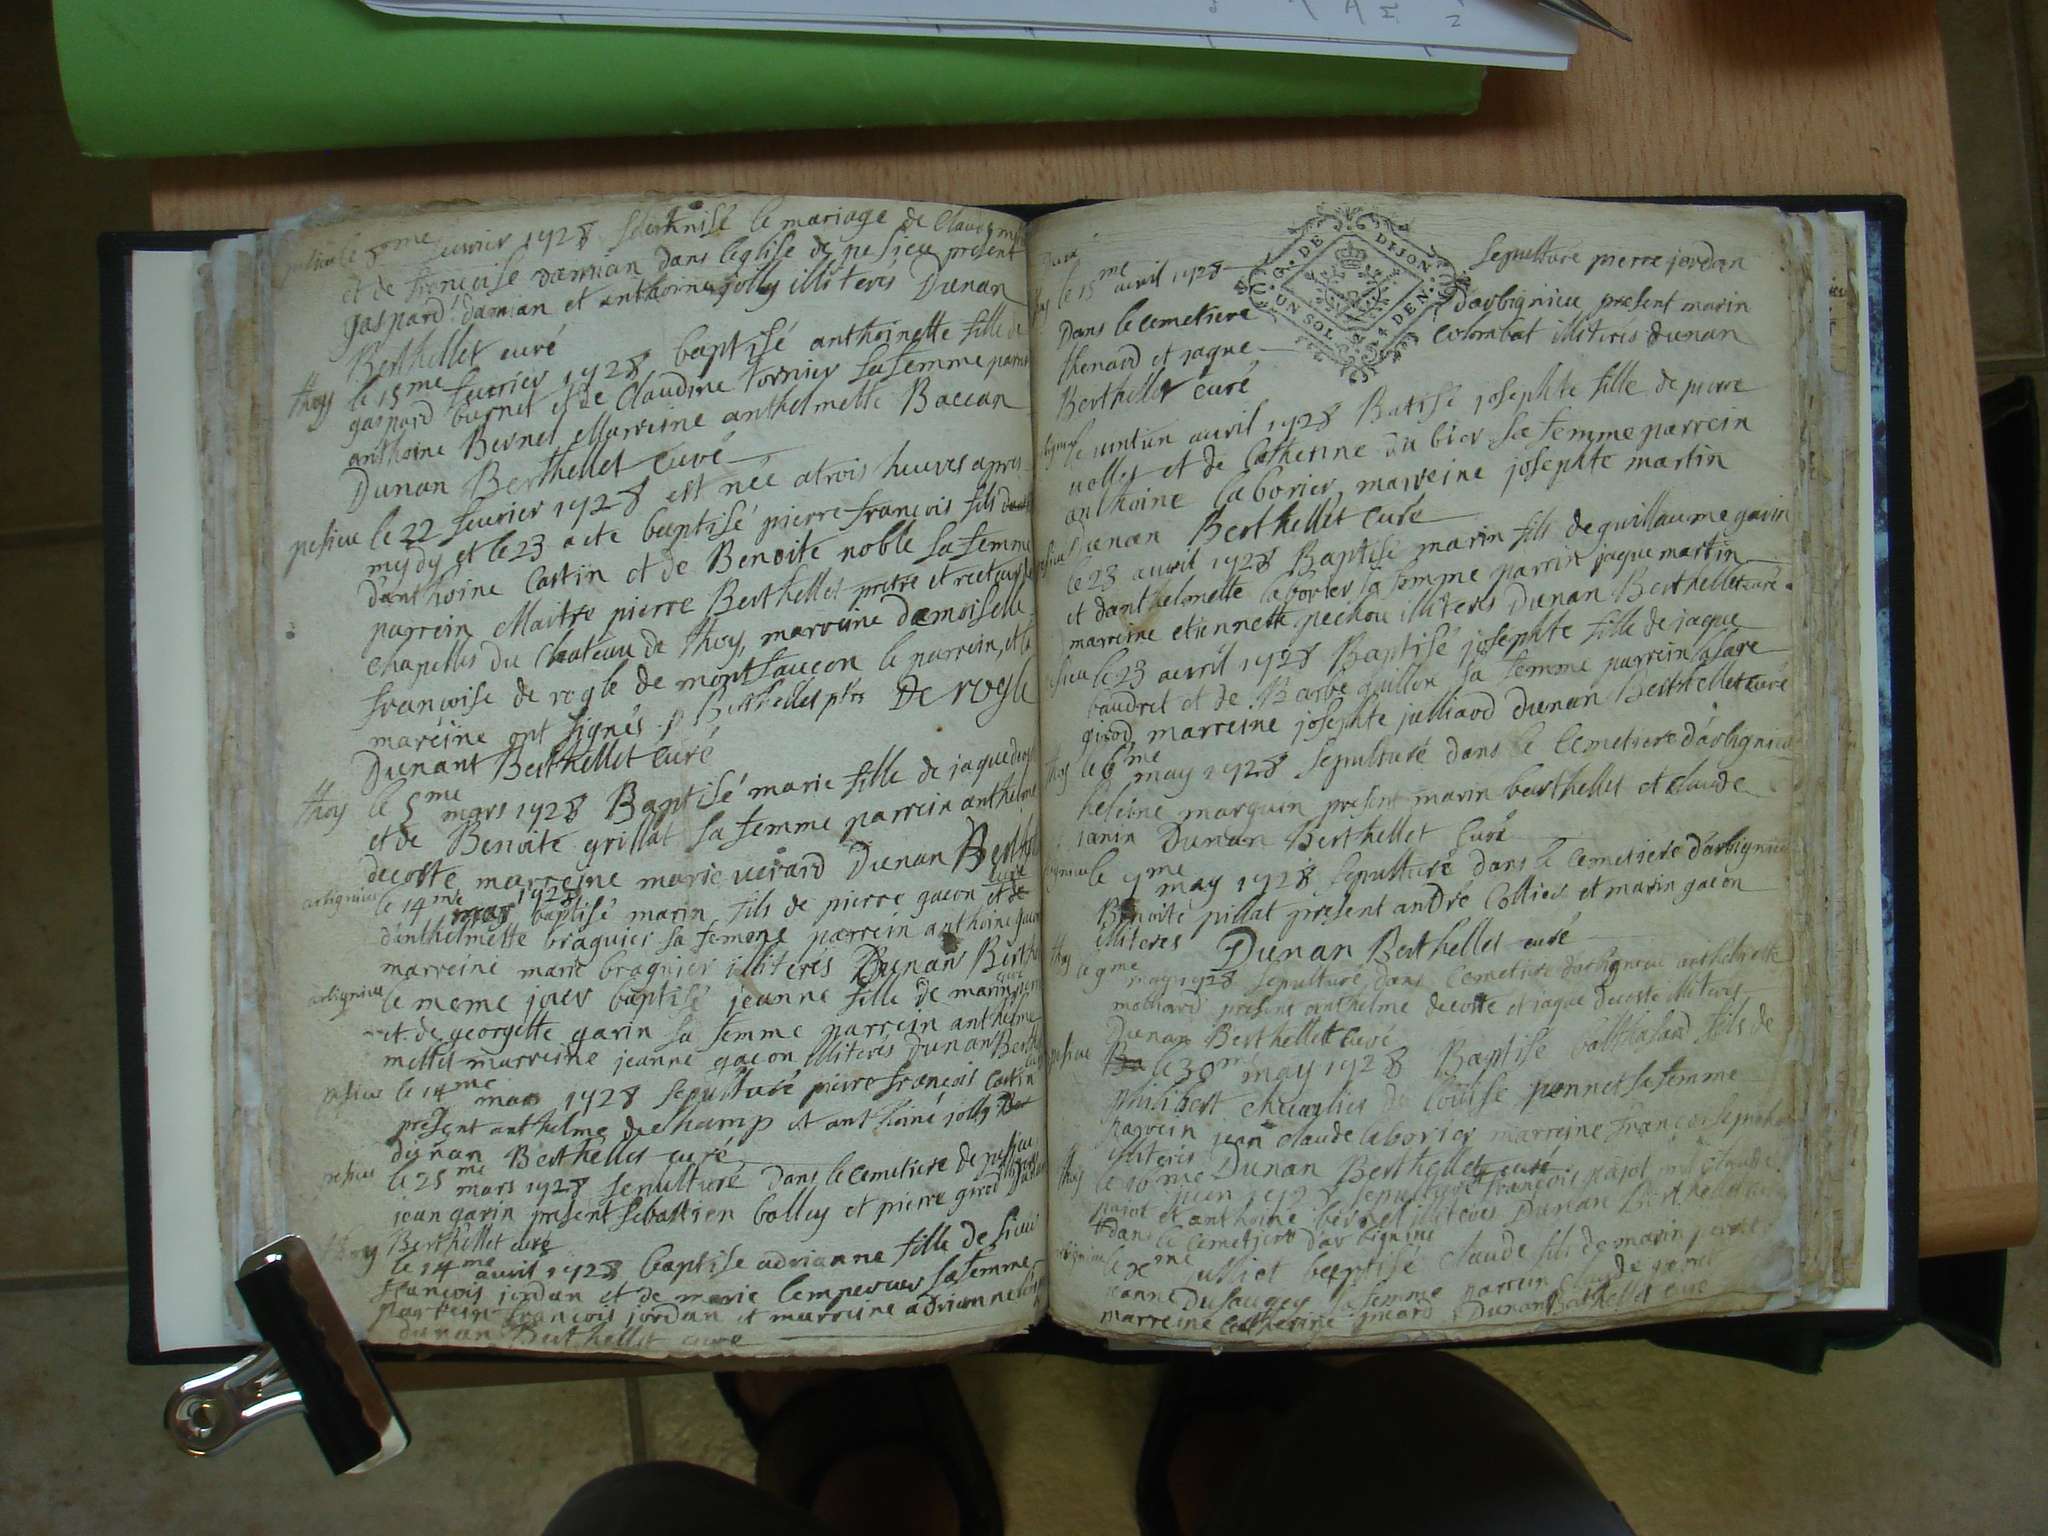 pesieu le 3me feurier 1728 le mariage de Claude
et de francoise damian dans leglise de pesieu present
gaspard damian et anthoine jolly illiteres Dunan
Berthellet curé
thoy le 15me feurier 1728 baptisé anthoinette fille de
gaspard burnet et de Claudine tornier sa femme parrein
anthoine Bernet Marreine anthelmette Baccan
Dunan Berthellet curé
pesieu le 22 feurier 1728 est née atrois heures apres
mydy et le 23 a ete baptisé pierre francois fils
danthoine Costin et de Benoite noble sa femme
parrein Maitre pierre Berthellet pretre et recteur
chapelles du Chateau de thoy, marreine damoiselle
francoise de rogle de montfaucon le parrein, et la
mareine ont signés p Berthellet ptre De rogle
Dunant Berthellet curé
thoy le 5me mars 1728 Baptisé marie fille de jaque
et de Benoite grillat sa femme parrein anthelme
decoste marreine marie uerard Dunan Berthellet
curé
arbignieu le 14me mar 1728 baptisé marin fils de pierre gacon et de
danthelmette braguier sa femme parrein anthoine gacon
marreine marie bragnier illiteres Dunan Berthellet
curé
arbignieu le meme jour baptisé jeanne fille de marin
et de georgette garin sa femme parrein anthelme
mettet marreine jeanne gacon illiteres Dunan Berthellet
pesieu le 14me mars 1728 sepulturé pierre francois Costin
present anthelme duchamp et anthoine jolly
dunan Berthellet curé
pesieu le 25me mars 1728 sepulturé dans le cemetiere de pesieu
jean garin present sebastien bolley et pierre girod
Berthellet curé
thoy le 14me auril 1728 baptisé adrianne fille de sieur
francois jordan et de marie lempereur sa femme
parrein francois jordan et marreine adrianne
dunan Berthellet curé
le 15me auril 1728 sepulturé pierre jordan
Dans le cemetiere d'arbignieu present marin
thenard et jaque colombat illiteres dunan
Berthellet curé
G. DE DIJON
UN SOL 4 DEN.
le uintun auril 1728 Batisé josephte fille de pierre
uollet et de Catherine du bier sa femme parrein
anthoine laborier, marreine josephte martin
Dunan Berthellet curé
pesieu le 23 auril 1728 Baptisé marin fils de guillaume garin
et danthelmette laborier sa femme parrin jaque martin
marreine etiennette pechou illiteres Dunan Berthellet curé
pesieu le 23 auril 1728 Baptisé josephte fille de jaque
baudret et de Barbe guillon sa femme parrein
girod marreine josephte julliard Dunan Berthellet curé
thoy le 6me may 1728 sepulturé dans le Cemetiere d'arbignieu
heleine marguin present marin berthellet et claude
janin Dunan Berthellet Curé
arbignieu le 9me may 1728 sepulturé dans le cemetiere d'arbignieu
Benoite pillat present andré Collier et marin gacon
illiteres Dunan Berthellet curé
thoy le 9me may 1728 sepulturé dans Cemetiere darbignieu anthelmette
mollard present anthelme decoste et jaque decoste illiteres
Dunan Berthellet curé
pesieu le 30me may 1728 Baptisé balthasard fils de
philibert cheualier de Louise pennet sa femme
parrein jean claude laborier marreine francoise
illiteres Dunan Berthellet curé
thoy le 10me juin 1728 sepulturé francois pajot present Claude
pajot et anthoine bernet illiteres Dunan Berthellet curé
dans le cemetiere d'arbignieu
arbignieu juillet baptisé claude fils de marin
jeanne Dusaugey sa femme parrein claude
marreine catherine picard Dunan Berthellet curé